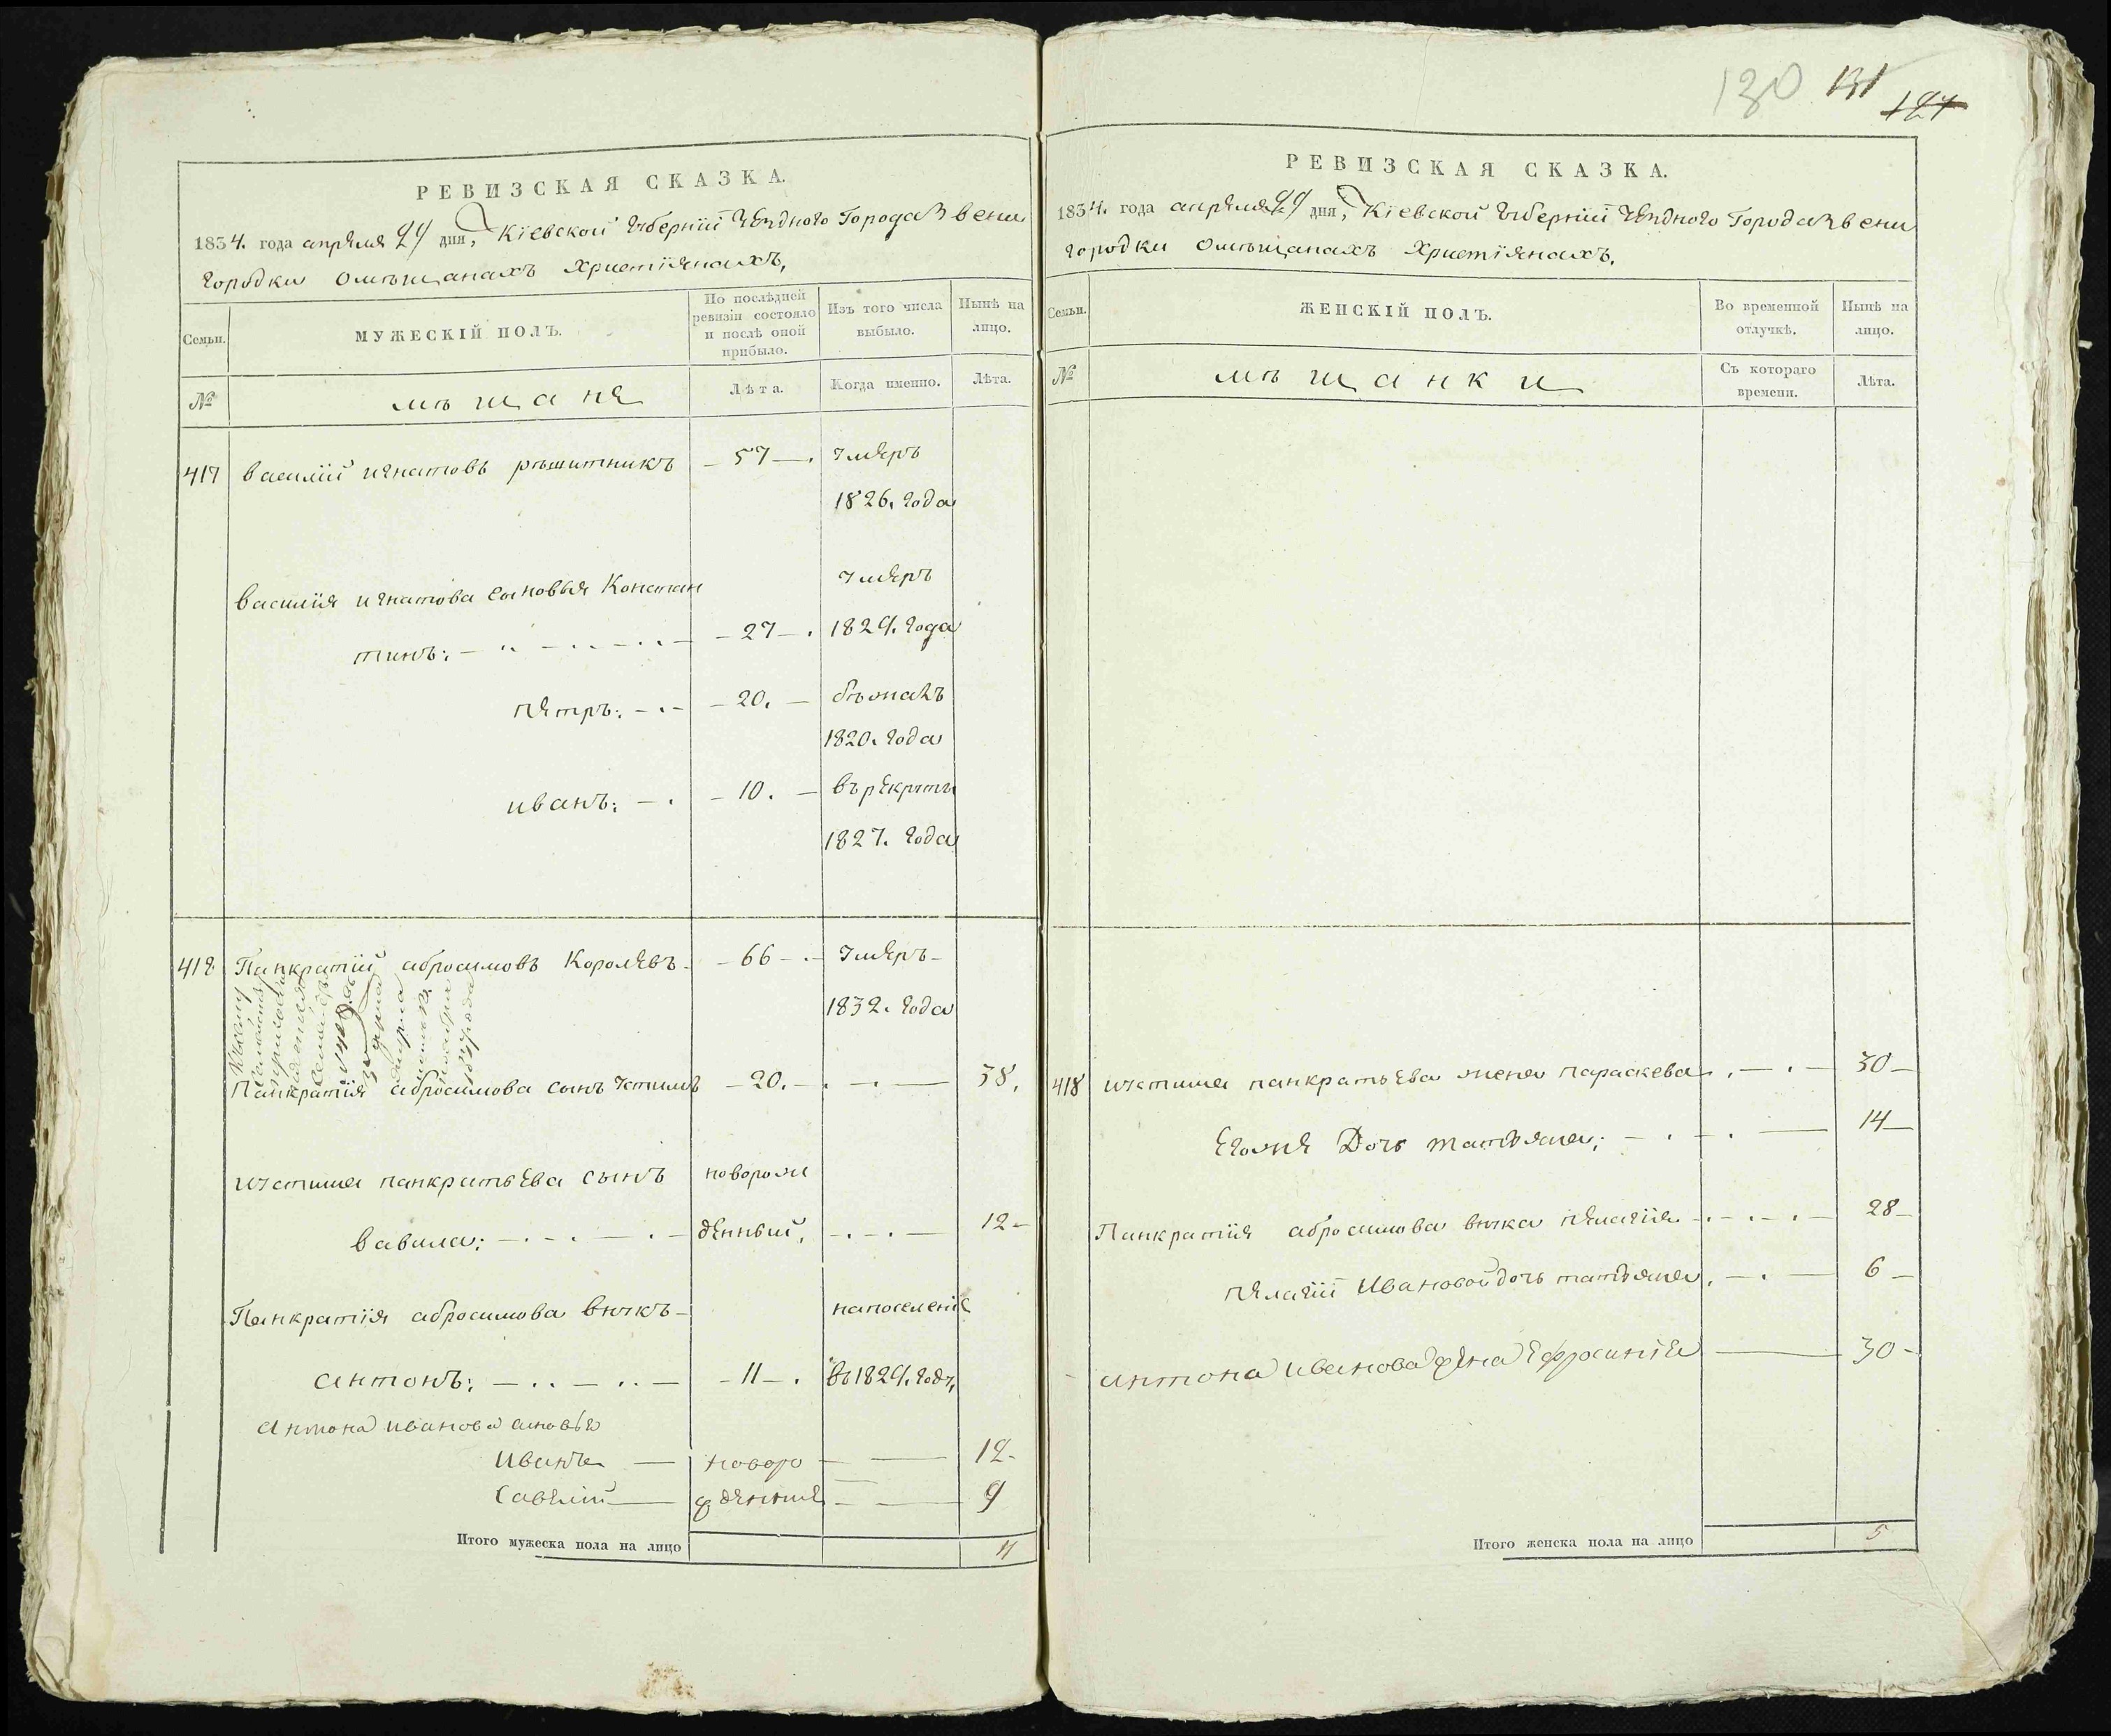 130 131 127
РЕВИЗСКАЯ СКАЗКА.
1834. года апреля 29 дня, Кіевской Губерніи Уезднаго Города Звени
Городки О мѣщанахъ Христіянахъ,
Семьи.
МУЖЕСКІЙ ПОЛЪ.
По послѣдней ревизіи состояло и послѣ оной прибыло.
Изъ того числа выбыло.
Нынѣ на лицо.
№
мѣщане
Лѣта.
Когда именно.
Лѣта.
417 василій игнатовъ рѣшитникъ – 57 – умеръ
1826. года
василія игнатова сыновья Констан умеръ
тинъ: – 27 – 1829. года
петръ: – 20. – бѣжалъ
1820. года
иванъ: – 10. – въ рекруты
1827. года
418 Панкратій абросимовъ Королевъ – 66 – умеръ –
1832. года
Панкратія абросимова сынъ устимъ – 20. – 38.
устима панкратьева сынъ новорож
вавила: – денный, – 12 –
Панкратія абросимова внукъ – на поселеніе
антонъ: – 11 – въ 1829. году,
Антона иванова сыновья
Иванъ — новоро — 12 –
Савелій — жденные — 9
Итого мужеска пола на лицо 4
РЕВИЗСКАЯ СКАЗКА.
1834. года апреля 29 дня, Кіевской Губерніи Уезднаго Города Звени
городки О мѣщанахъ Христіянахъ.
Семьи.
ЖЕНСКІЙ ПОЛЪ.
Во временной отлучкѣ.
Нынѣ на лицо.
№
мѣщанки
Съ котораго времени.
Лѣта.
418 устима панкратьева жена параскева – 30 –
Егоже Дочь татьяна: – 14 –
Панкратія абросимова внука пелагія – 28 –
пелагіи Ивановой дочь татьяна, – 6 –
антона иванова жена Ефросинія — 30 –
Итого женска пола на лицо 5